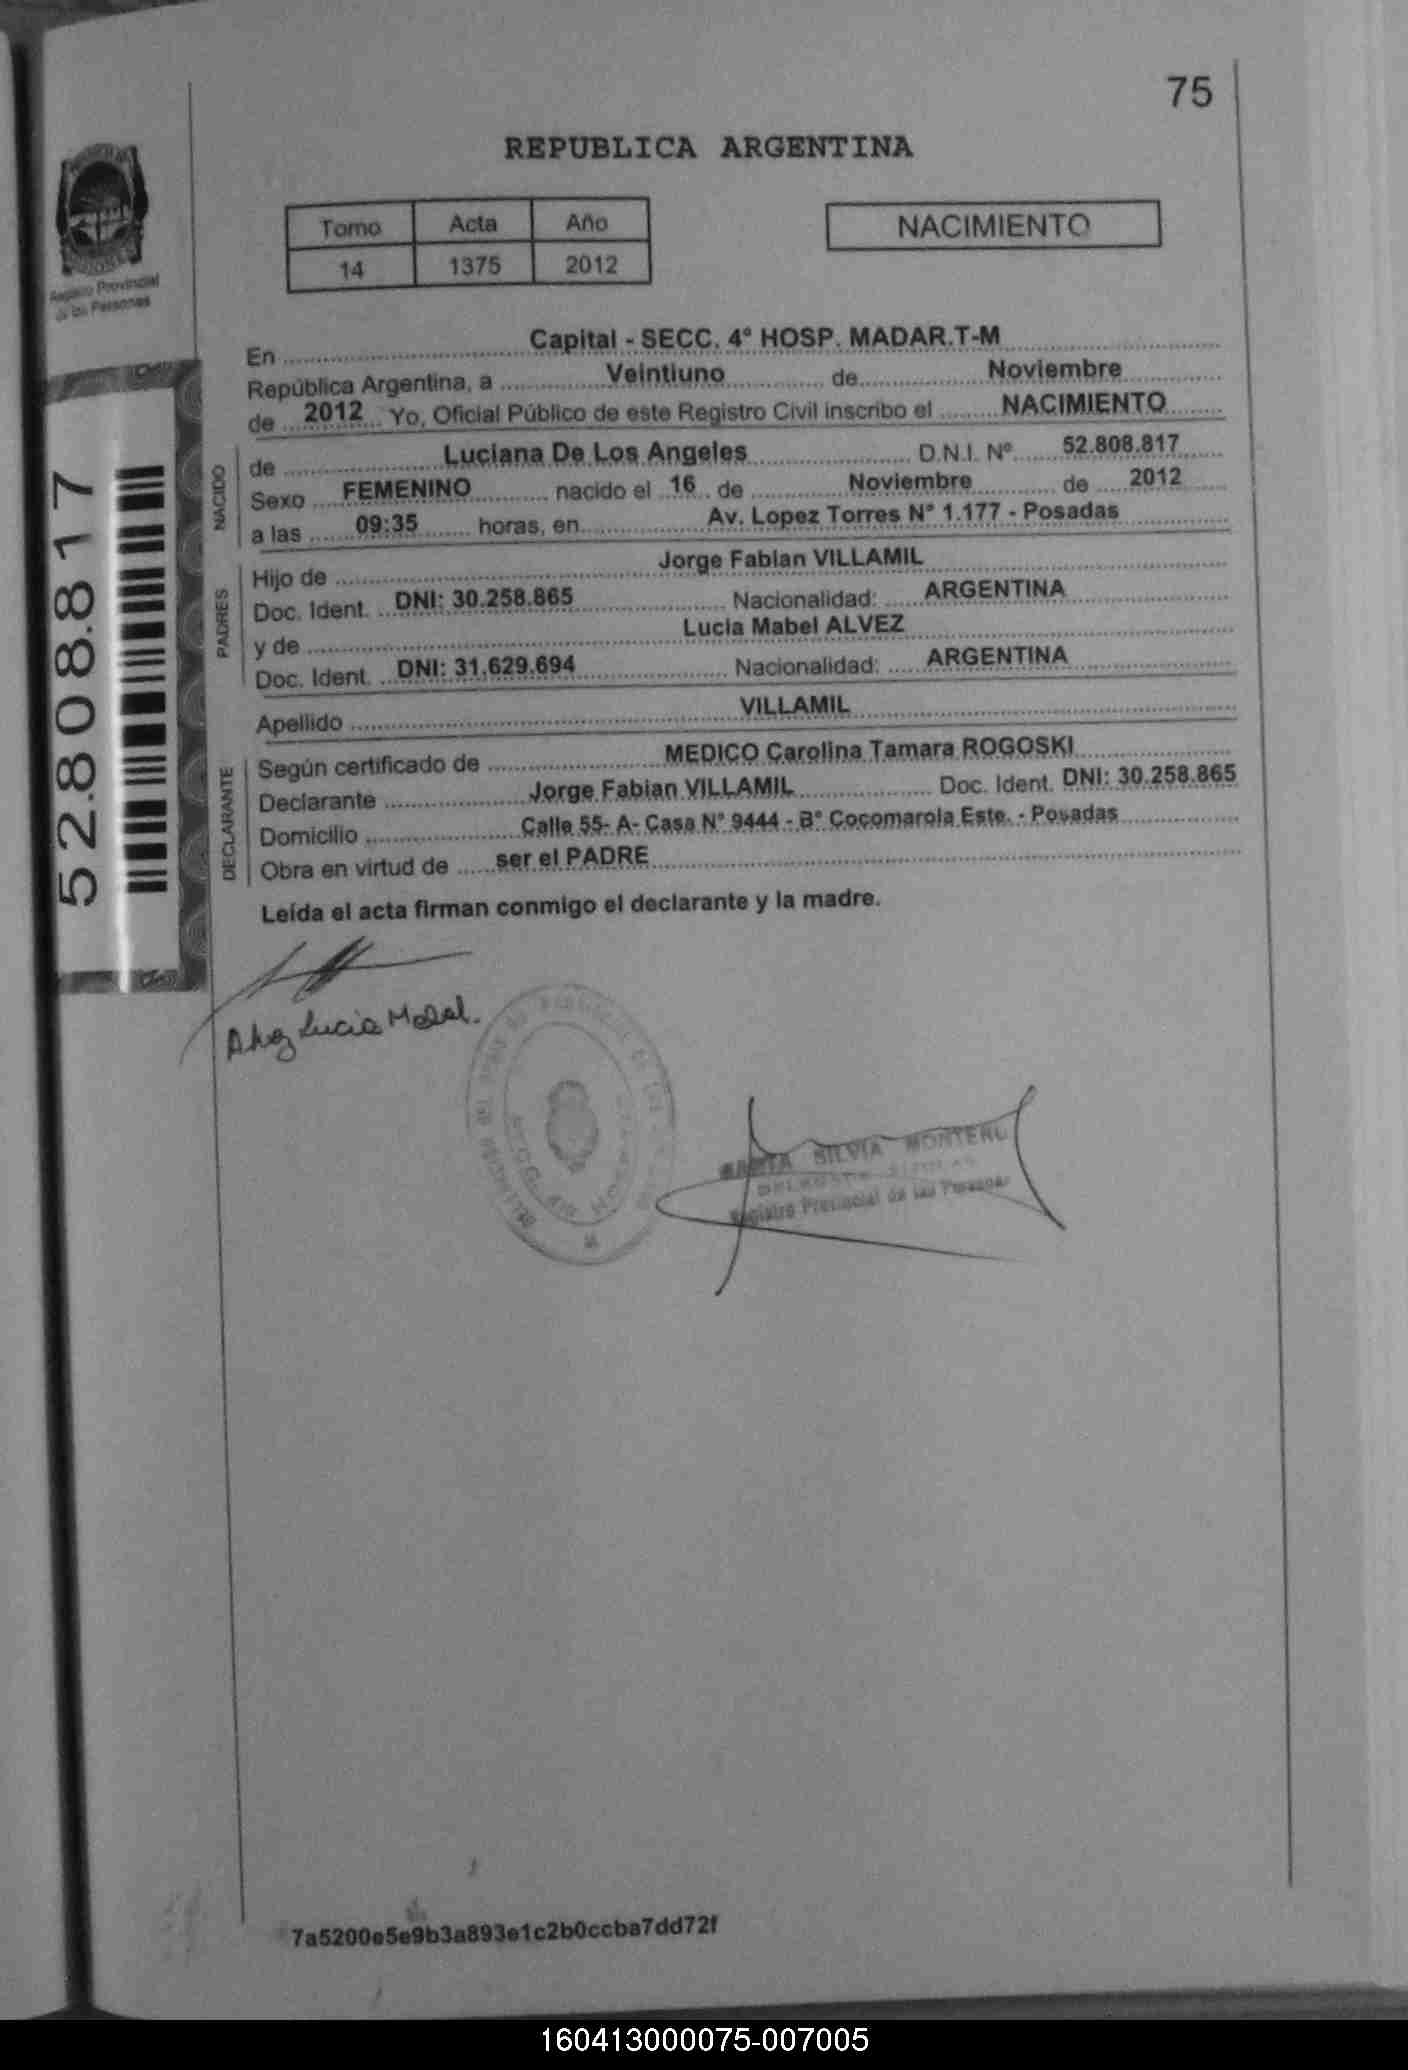 75
REPUBLICA ARGENTINA
Tomo Acta Año
14 1375 2012
NACIMIENTO
Registro Provincial
de las Personas
52.808.817
En Capital - SECC. 4° HOSP. MADAR.T-M
República Argentina, a Veintiuno de Noviembre
de 2012 Yo, Oficial Público de este Registro Civil inscribo el NACIMIENTO
NACIDO
de Luciana De Los Angeles D.N.I. N° 52.808.817
Sexo FEMENINO nacido el 16 de Noviembre de 2012
a las 09:35 horas, en Av. Lopez Torres N° 1.177 - Posadas
PADRES
Hijo de Jorge Fabian VILLAMIL
Doc. Ident. DNI: 30.258.865 Nacionalidad: ARGENTINA
y de Lucia Mabel ALVEZ
Doc. Ident. DNI: 31.629.694 Nacionalidad: ARGENTINA
Apellido VILLAMIL
DECLARANTE
Según certificado de MEDICO Carolina Tamara ROGOSKI
Declarante Jorge Fabian VILLAMIL Doc. Ident. DNI: 30.258.865
Domicilio Calle 55- A- Casa N° 9444 - B° Cocomarola Este. - Posadas
Obra en virtud de ser el PADRE
Leída el acta firman conmigo el declarante y la madre.
Alvez Lucia Mabel.
SILVIA MONTERO
Registro Provincial de las Personas
7a5200e5e9b3a893e1c2b0ccba7dd72f
160413000075-007005